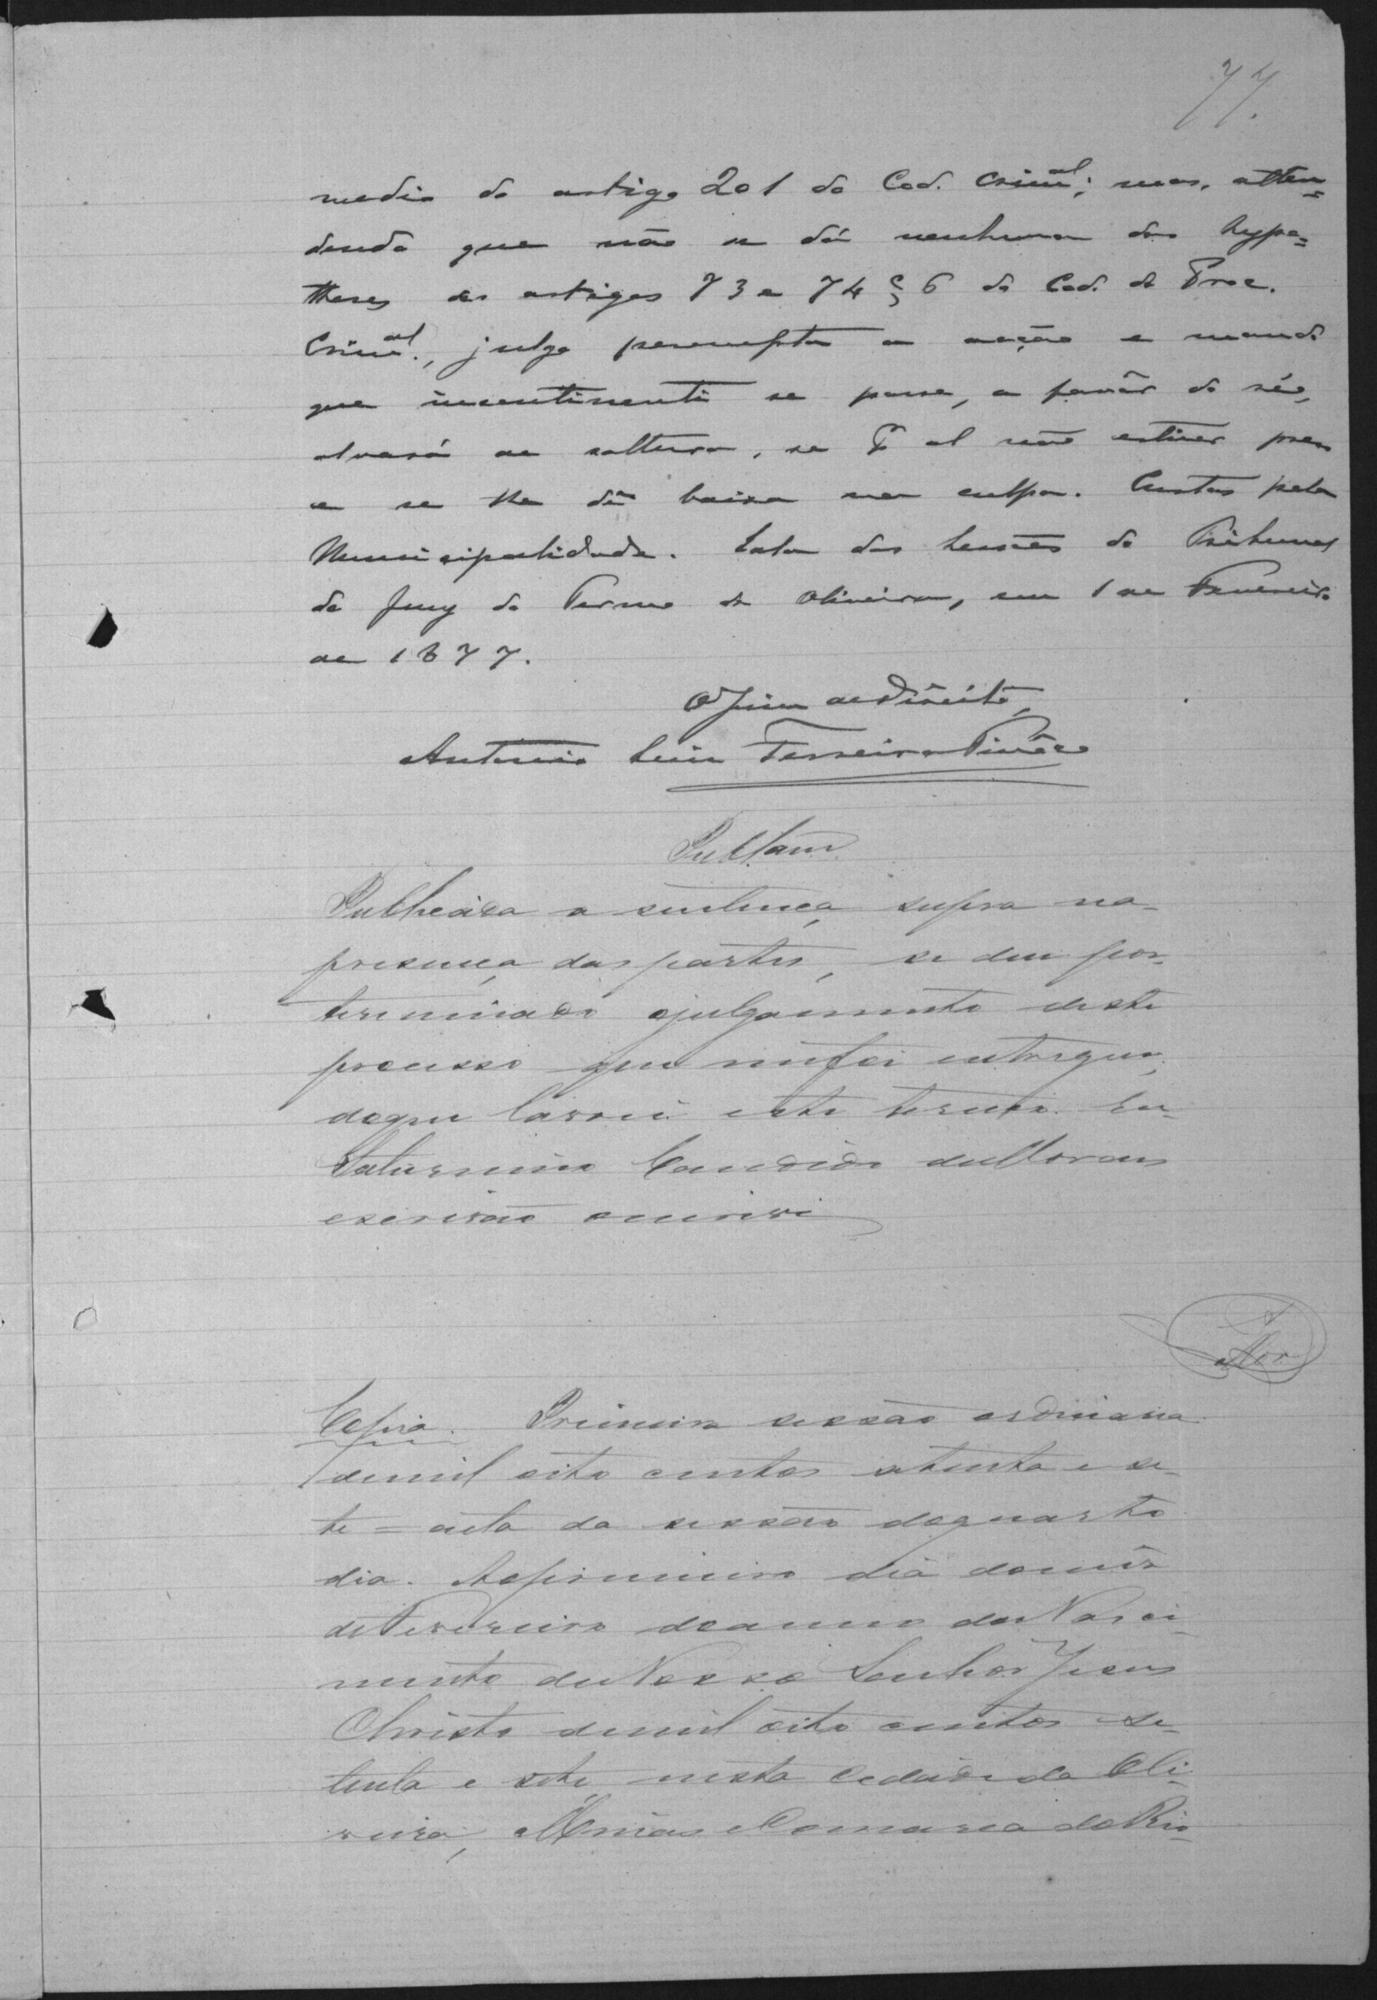 77.
medio do artigo 201 do Cod. Crimal; mas, atten=
dendo que não se dá nenhuma das hypo=
theses dos artigos 73 e 74 § 6 do Cod. do Proc.
Crimal., julgo perempta a acção e mando
que incontinenti se passe, a favôr do réo,
alvará de soltura, se por al não estiver preso
e se lhe dê baixa na culpa. Custas pela
Municipalidade. Sala das Sessões do Tribunal
do Jury do Termo de Oliveira, em 1 de Fevereiro
de 1877.
O Juiz de Direito,
Antonio Luiz Ferreira Tinôco
Publam
Publicada a sentença supra na
presença das partes, se deu por
terminado o julgamento deste
processo que me foi entregue,
do que lavrei este termo. Eu
Saturnino Candido de Moraes
escrivão escrevi
Mor
Copia. Primeira sessão ordinaria
de mil oito centos setenta e se-
te = acta da sessão do quarto
dia. Ao primeiro dia do mêz
de Fevereiro do anno do Nasci-
mento de Nosso Senhor Jesus
Christo de mil oito centos se-
tenta e sete, nesta Cidade da Oli-
veira, Minas Comarca do Rio